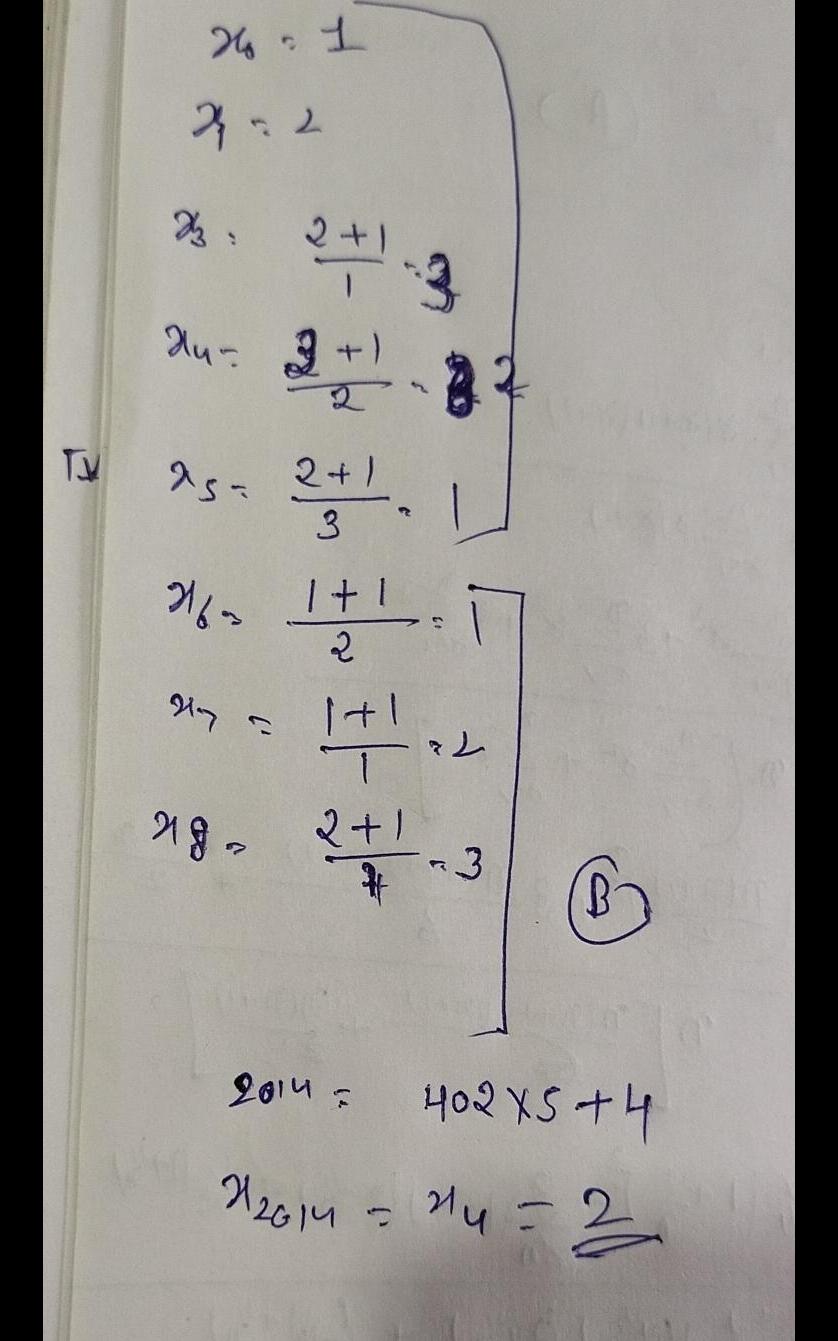 x₀ = 1
x₁ = 2
x₃ = (2+1)/1 = 3
x₄ = (3+1)/2 = 2
IV x₅ = (2+1)/3 = 1
x₆ = (1+1)/2 = 1
x₇ = (1+1)/1 = 2
x₈ = (2+1)/1 = 3
B
2014 = 402×5+4
x₂₀₁₄ = x₄ = 2